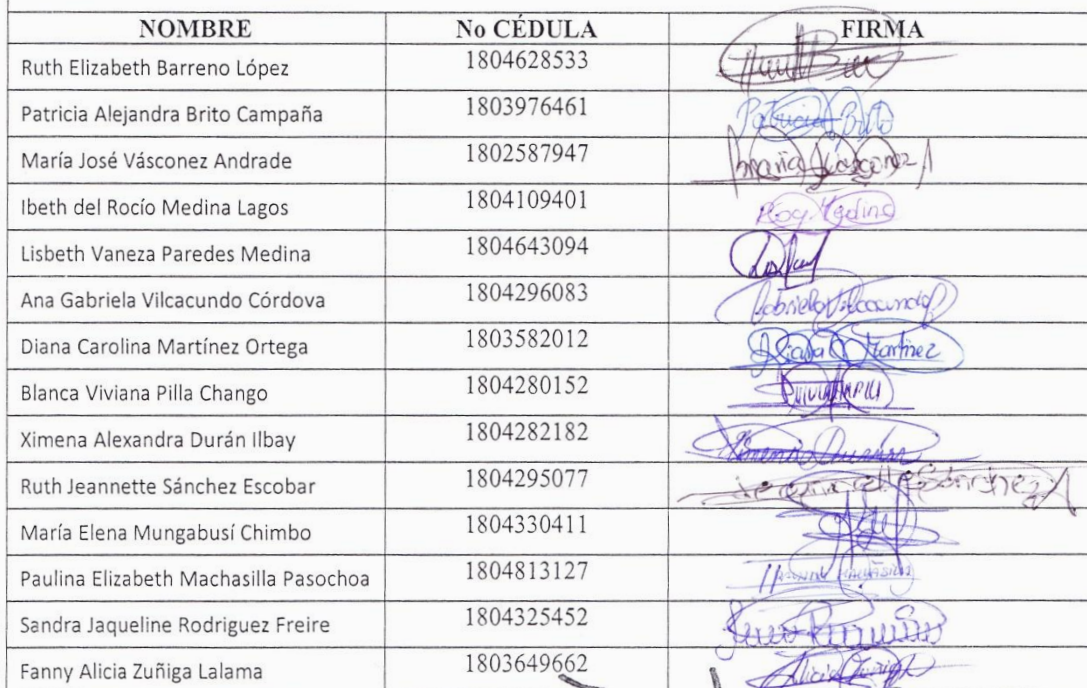 NOMBRE No CÉDULA FIRMA
Ruth Elizabeth Barreno López 1804628533
Patricia Alejandra Brito Campaña 1803976461 Patricia Brito
María José Vásconez Andrade 1802587947 María Vásconez A
Ibeth del Rocío Medina Lagos 1804109401 Medina
Lisbeth Vaneza Paredes Medina 1804643094
Ana Gabriela Vilcacundo Córdova 1804296083 Gabriela Vilcacundo
Diana Carolina Martínez Ortega 1803582012 Diana C Martínez
Blanca Viviana Pilla Chango 1804280152
Ximena Alexandra Durán Ilbay 1804282182 Ximena Durán
Ruth Jeannette Sánchez Escobar 1804295077 Sánchez
María Elena Mungabusí Chimbo 1804330411
Paulina Elizabeth Machasilla Pasochoa 1804813127
Sandra Jaqueline Rodriguez Freire 1804325452
Fanny Alicia Zuñiga Lalama 1803649662 Alicia Zuñiga